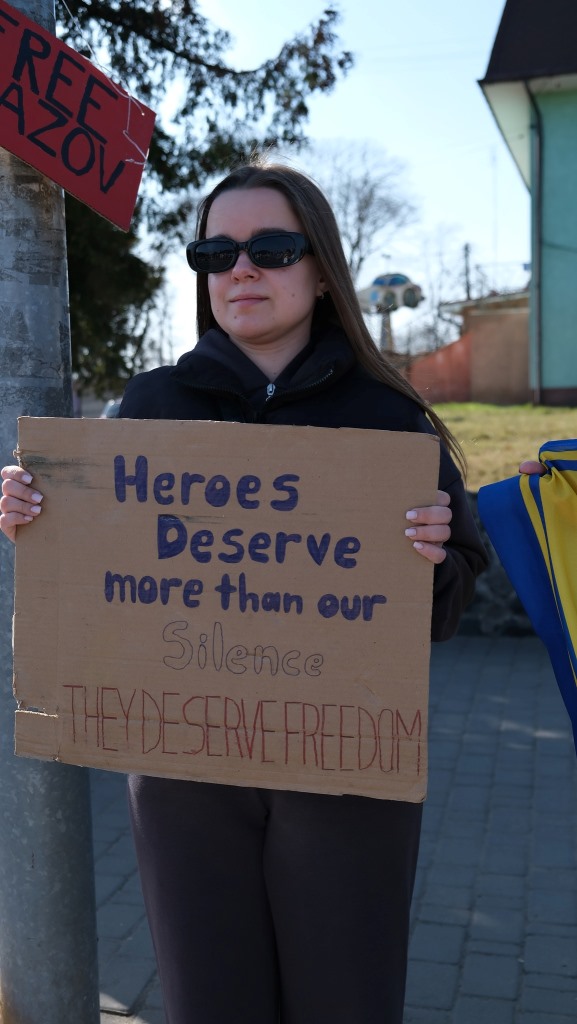 FREE
AZOV
Heroes
Deserve
more than our
Silence
THEY DESERVE FREEDOM